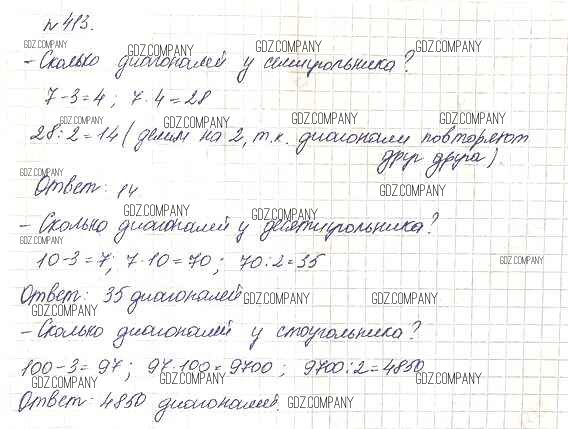 № 413.
GDZ.COMPANY GDZ.COMPANY GDZ.COMPANY GDZ.COMPANY
- Сколько диагоналей у семиугольника?
7-3=4; 7·4=28
GDZ.COMPANY GDZ.COMPANY GDZ.COMPANY GDZ.COMPANY
28:2=14 (делим на 2, т.к. диагонали повторяют
друг друга).
GDZ.COMPANY
Ответ: 14
GDZ.COMPANY
GDZ.COMPANY GDZ.COMPANY
- Сколько диагоналей у десятиугольника?
GDZ.COMPANY
10-3=7; 7·10=70; 70:2=35
GDZ.COMPANY
Ответ: 35 диагоналей
GDZ.COMPANY GDZ.COMPANY
GDZ.COMPANY
- Сколько диагоналей у стоугольника?
100-3=97; 97·100=9700; 9700:2=4850
GDZ.COMPANY GDZ.COMPANY GDZ.COMPANY
Ответ: 4850 диагоналей.
GDZ.COMPANY